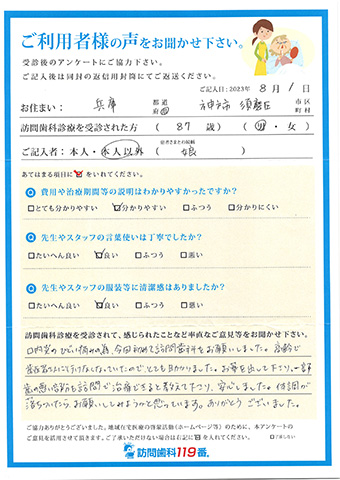 ご利用者様の声をお聞かせ下さい。
受診後のアンケートにご協力下さい。
ご記入後は同封の返信用封筒にてご返送ください。
ご記入日：2023年 8月 1日
お住まい： 兵庫 都道府県 神戸市 須磨区 市区町村
訪問歯科診療を受診された方 （ 87 歳）（ 男 ・ 女 ）
ご記入者：本人・本人以外 （ 娘 ）
あてはまる項目に☑をいれてください。
Q 費用や治療期間等の説明はわかりやすかったですか？
□とても分かりやすい ☑分かりやすい □ふつう □分かりにくい
Q 先生やスタッフの言葉使いは丁寧でしたか？
□たいへん良い ☑良い □ふつう □悪い
Q 先生やスタッフの服装等に清潔感はありましたか？
□たいへん良い ☑良い □ふつう □悪い
訪問歯科診療を受診されて、感じられたことなど率直なご意見等をお聞かせ下さい。
口内炎のひどい痛みの為、今回初めて訪問歯科をお願いしました。高齢で
歯医者さんに行けなくなっていたので、とても助かりました。お薬を出して下り、一部
歯の悪い箇所も訪問で治療できると教えて下り、安心しました。体調が
落ちついたら、お願いしてみようかと思っています。ありがとうございました。
ご協力ありがとうございました。地域在宅医療の啓蒙活動（ホームページ等）のために、本アンケートの
ご意見を活用させて頂きます。ご了承いただけない場合は右記に☑を入れてください。 □了承しない
訪問歯科119番®